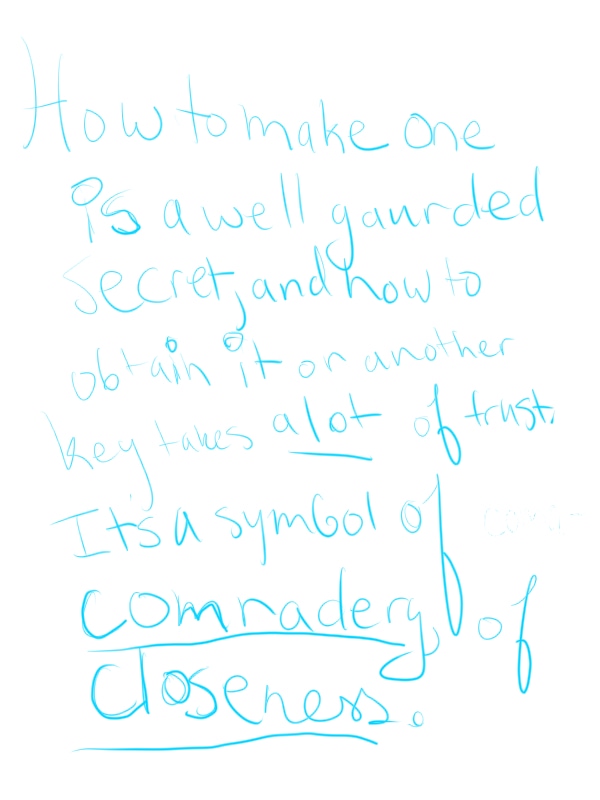 How to make one
is a well gaurded
secret, and how to
obtain it or another
key takes alot of trust.
It's a symbol of
comradery, of
closeness.